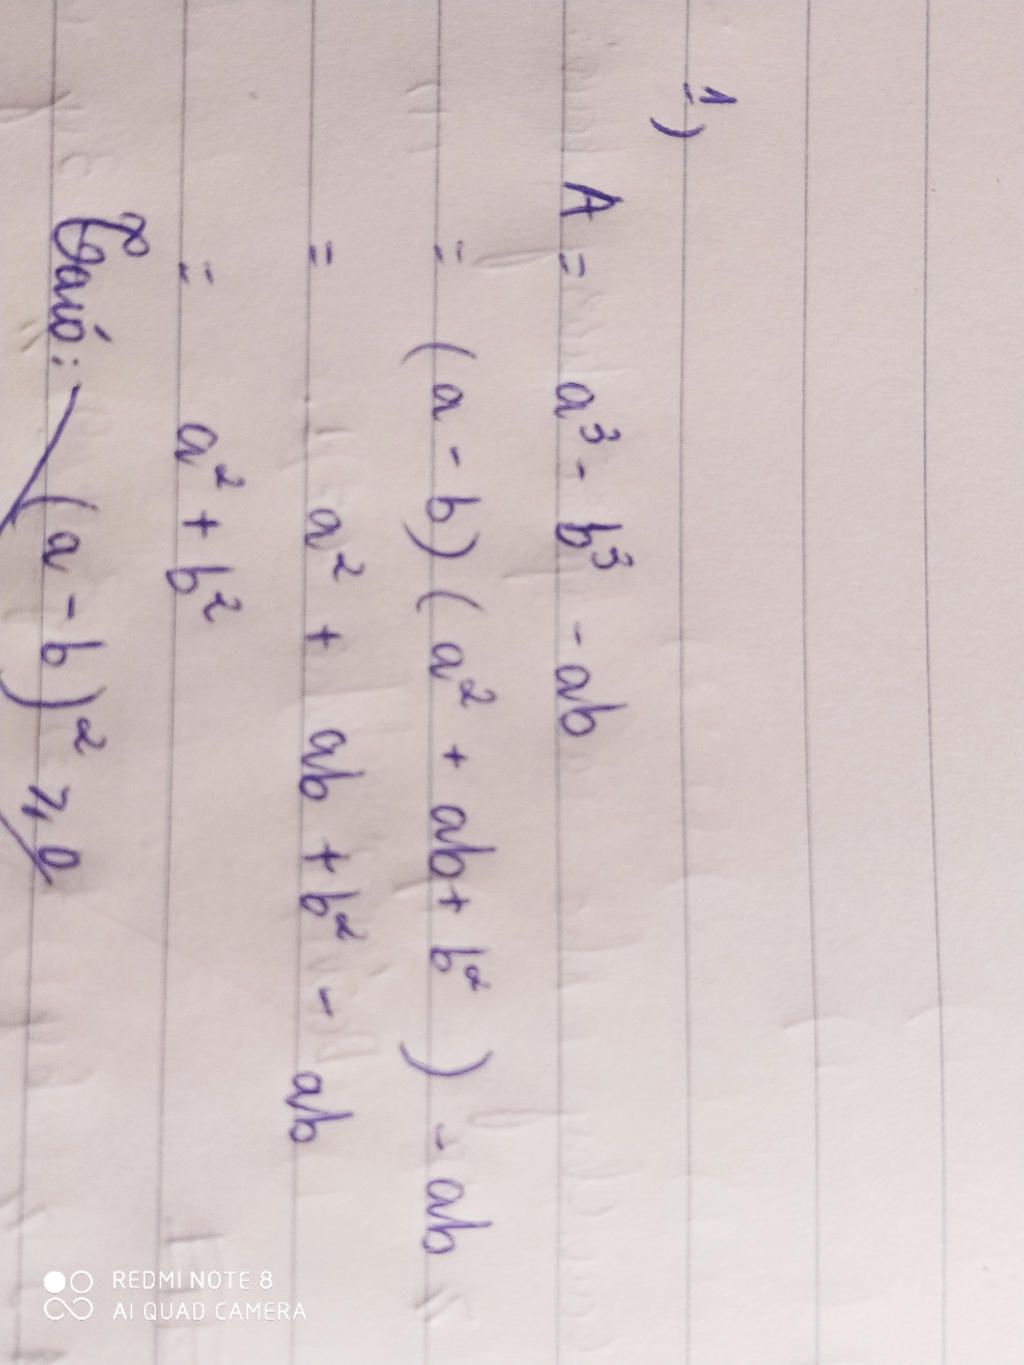 1)
A = a³ - b³ - ab
= (a - b)(a² + ab + b²) - ab
= a² + ab + b² - ab
= a² + b²
(a - b)² ≥ 0
REDMI NOTE 8
AI QUAD CAMERA